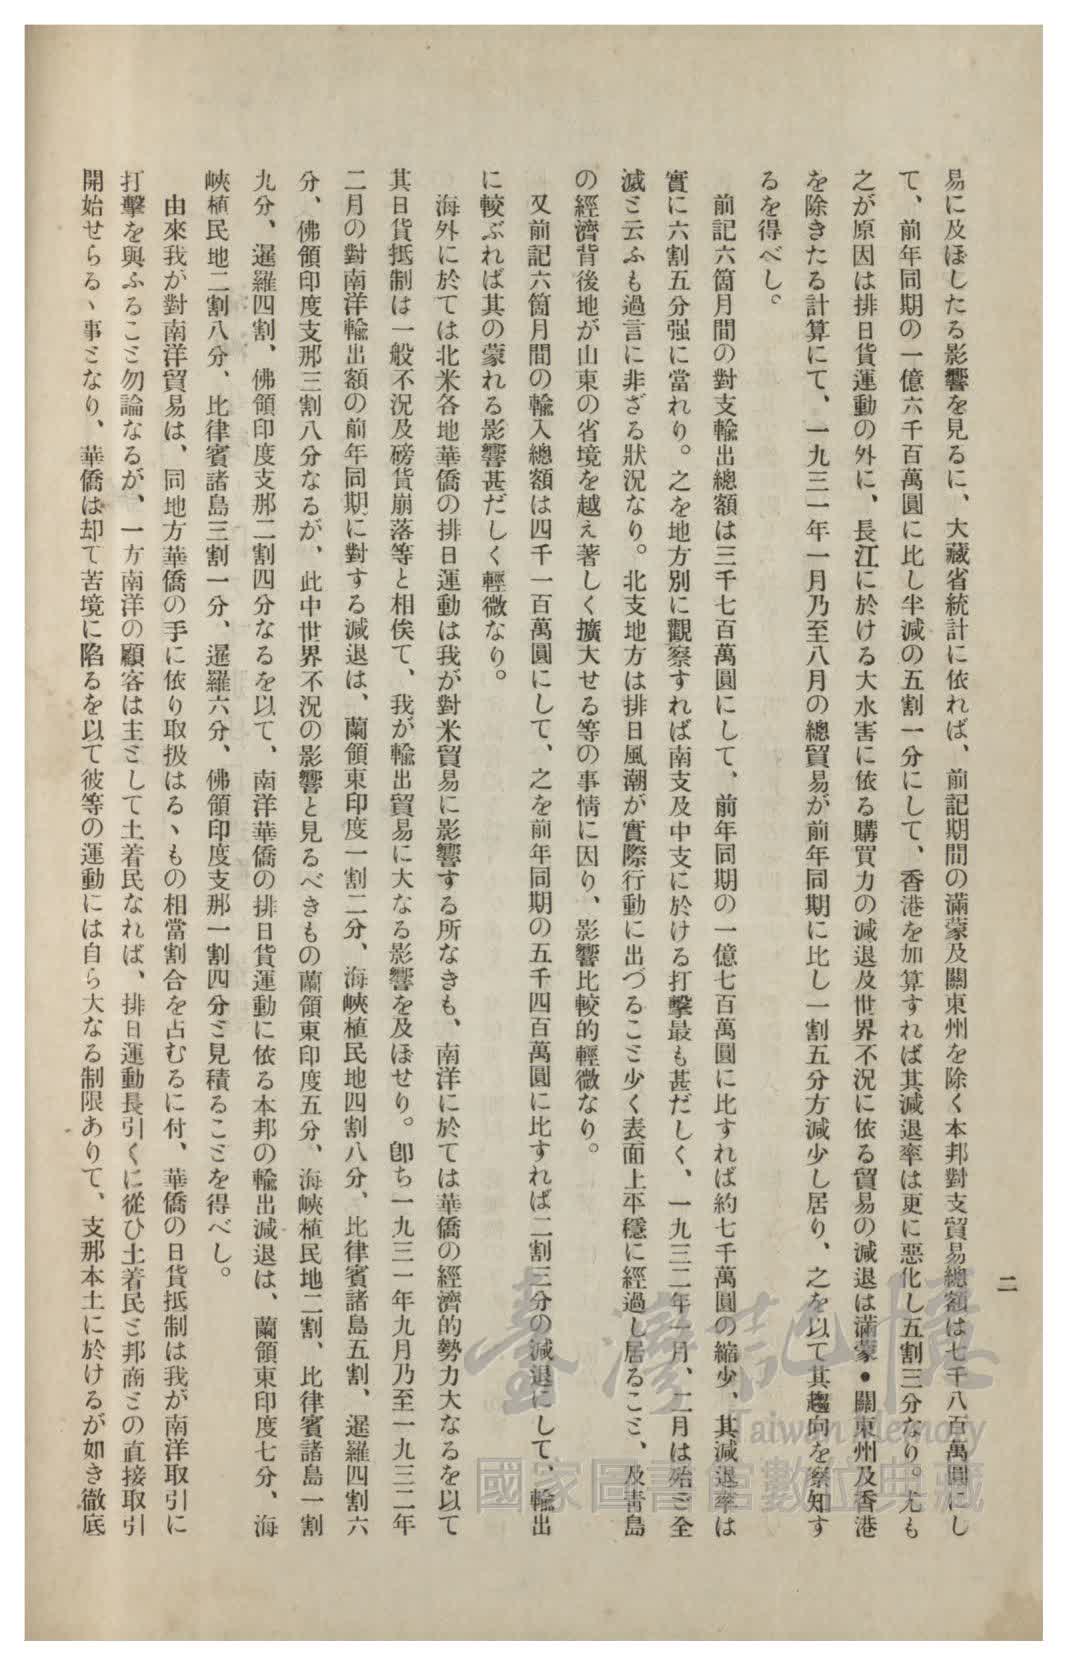 二
易に及ぼしたる影響を見るに、大藏省統計に依れば、前記期間の滿蒙及關東州を除く本邦對支貿易總額は七千八百萬圓にし
て、前年同期の一億六千百萬圓に比し半減の五割一分にして、香港を加算すれば其減退率は更に惡化し五割三分なり。尤も
之が原因は排日貨運動の外に、長江に於ける大水害に依る購買力の減退及世界不況に依る貿易の減退は滿蒙•關東州及香港
を除きたる計算にて、一九三一年一月乃至八月の總貿易が前年同期に比し一割五分方減少し居り、之を以て其趨向を察知す
るを得べし。
前記六箇月間の對支輸出總額は三千七百萬圓にして、前年同期の一億七百萬圓に比すれば約七千萬圓の縮少、其減退率は
實に六割五分强に當れり。之を地方別に觀察すれば南支及中支に於ける打擊最も甚だしく、一九三二年一月、二月は殆ミ全
滅ミ云ふも過言に非ざる狀況なり。北支地方は排日風潮が實際行動に出づるこミ少く表面上平穩に經過し居るこミ、及靑島
の經濟背後地が山東の省境を越え著しく擴大せる等の事情に因り、影響比較的輕微なり。
又前記六箇月間の輸入總額は四千一百萬圓にして、之を前年同期の五千四百萬圓に比すれば二割三分の減退にして、輸出
に較ぶれば其の蒙れる影響甚だしく輕微なり。
海外に於ては北米各地華僑の排日運動は我が對米貿易に影響する所なきも、南洋に於ては華僑の經濟的勢力大なるを以て
其日貨抵制は一般不況及磅貨崩落等と相俟て、我が輸出貿易に大なる影響を及ほせり。卽ち一九三一年九月乃至一九三二年
二月の對南洋輸出額の前年同期に對する減退は、蘭領東印度一割二分、海峽植民地四割八分、比律賓諸島五割、暹羅四割六
分、佛領印度支那三割八分なるが、此中世界不況の影響と見るべきもの蘭領東印度五分、海峽植民地二割、比律賓諸島一割
九分、暹羅四割、佛領印度支那二割四分なるを以て、南洋華僑の排日貨運動に依る本邦の輸出減退は、蘭領東印度七分、海
峽植民地二割八分、比律賓諸島三割一分、暹羅六分、佛領印度支那一割四分ミ見積るこミを得べし。
由來我が對南洋貿易は、同地方華僑の手に依り取扱はるヽもの相當割合を占むるに付、華僑の日貨抵制は我が南洋取引に
打擊を與ふるこミ勿論なるが、一方南洋の顧客は主ミして土着民なれば、排日運動長引くに從ひ土着民ミ邦商ミの直接取引
開始せらるヽ事ミなり、華僑は却て苦境に陷るを以て彼等の運動には自ら大なる制限ありて、支那本土に於けるが如き徹底
臺灣記憶
Taiwan Memory
國家圖書館數位典藏